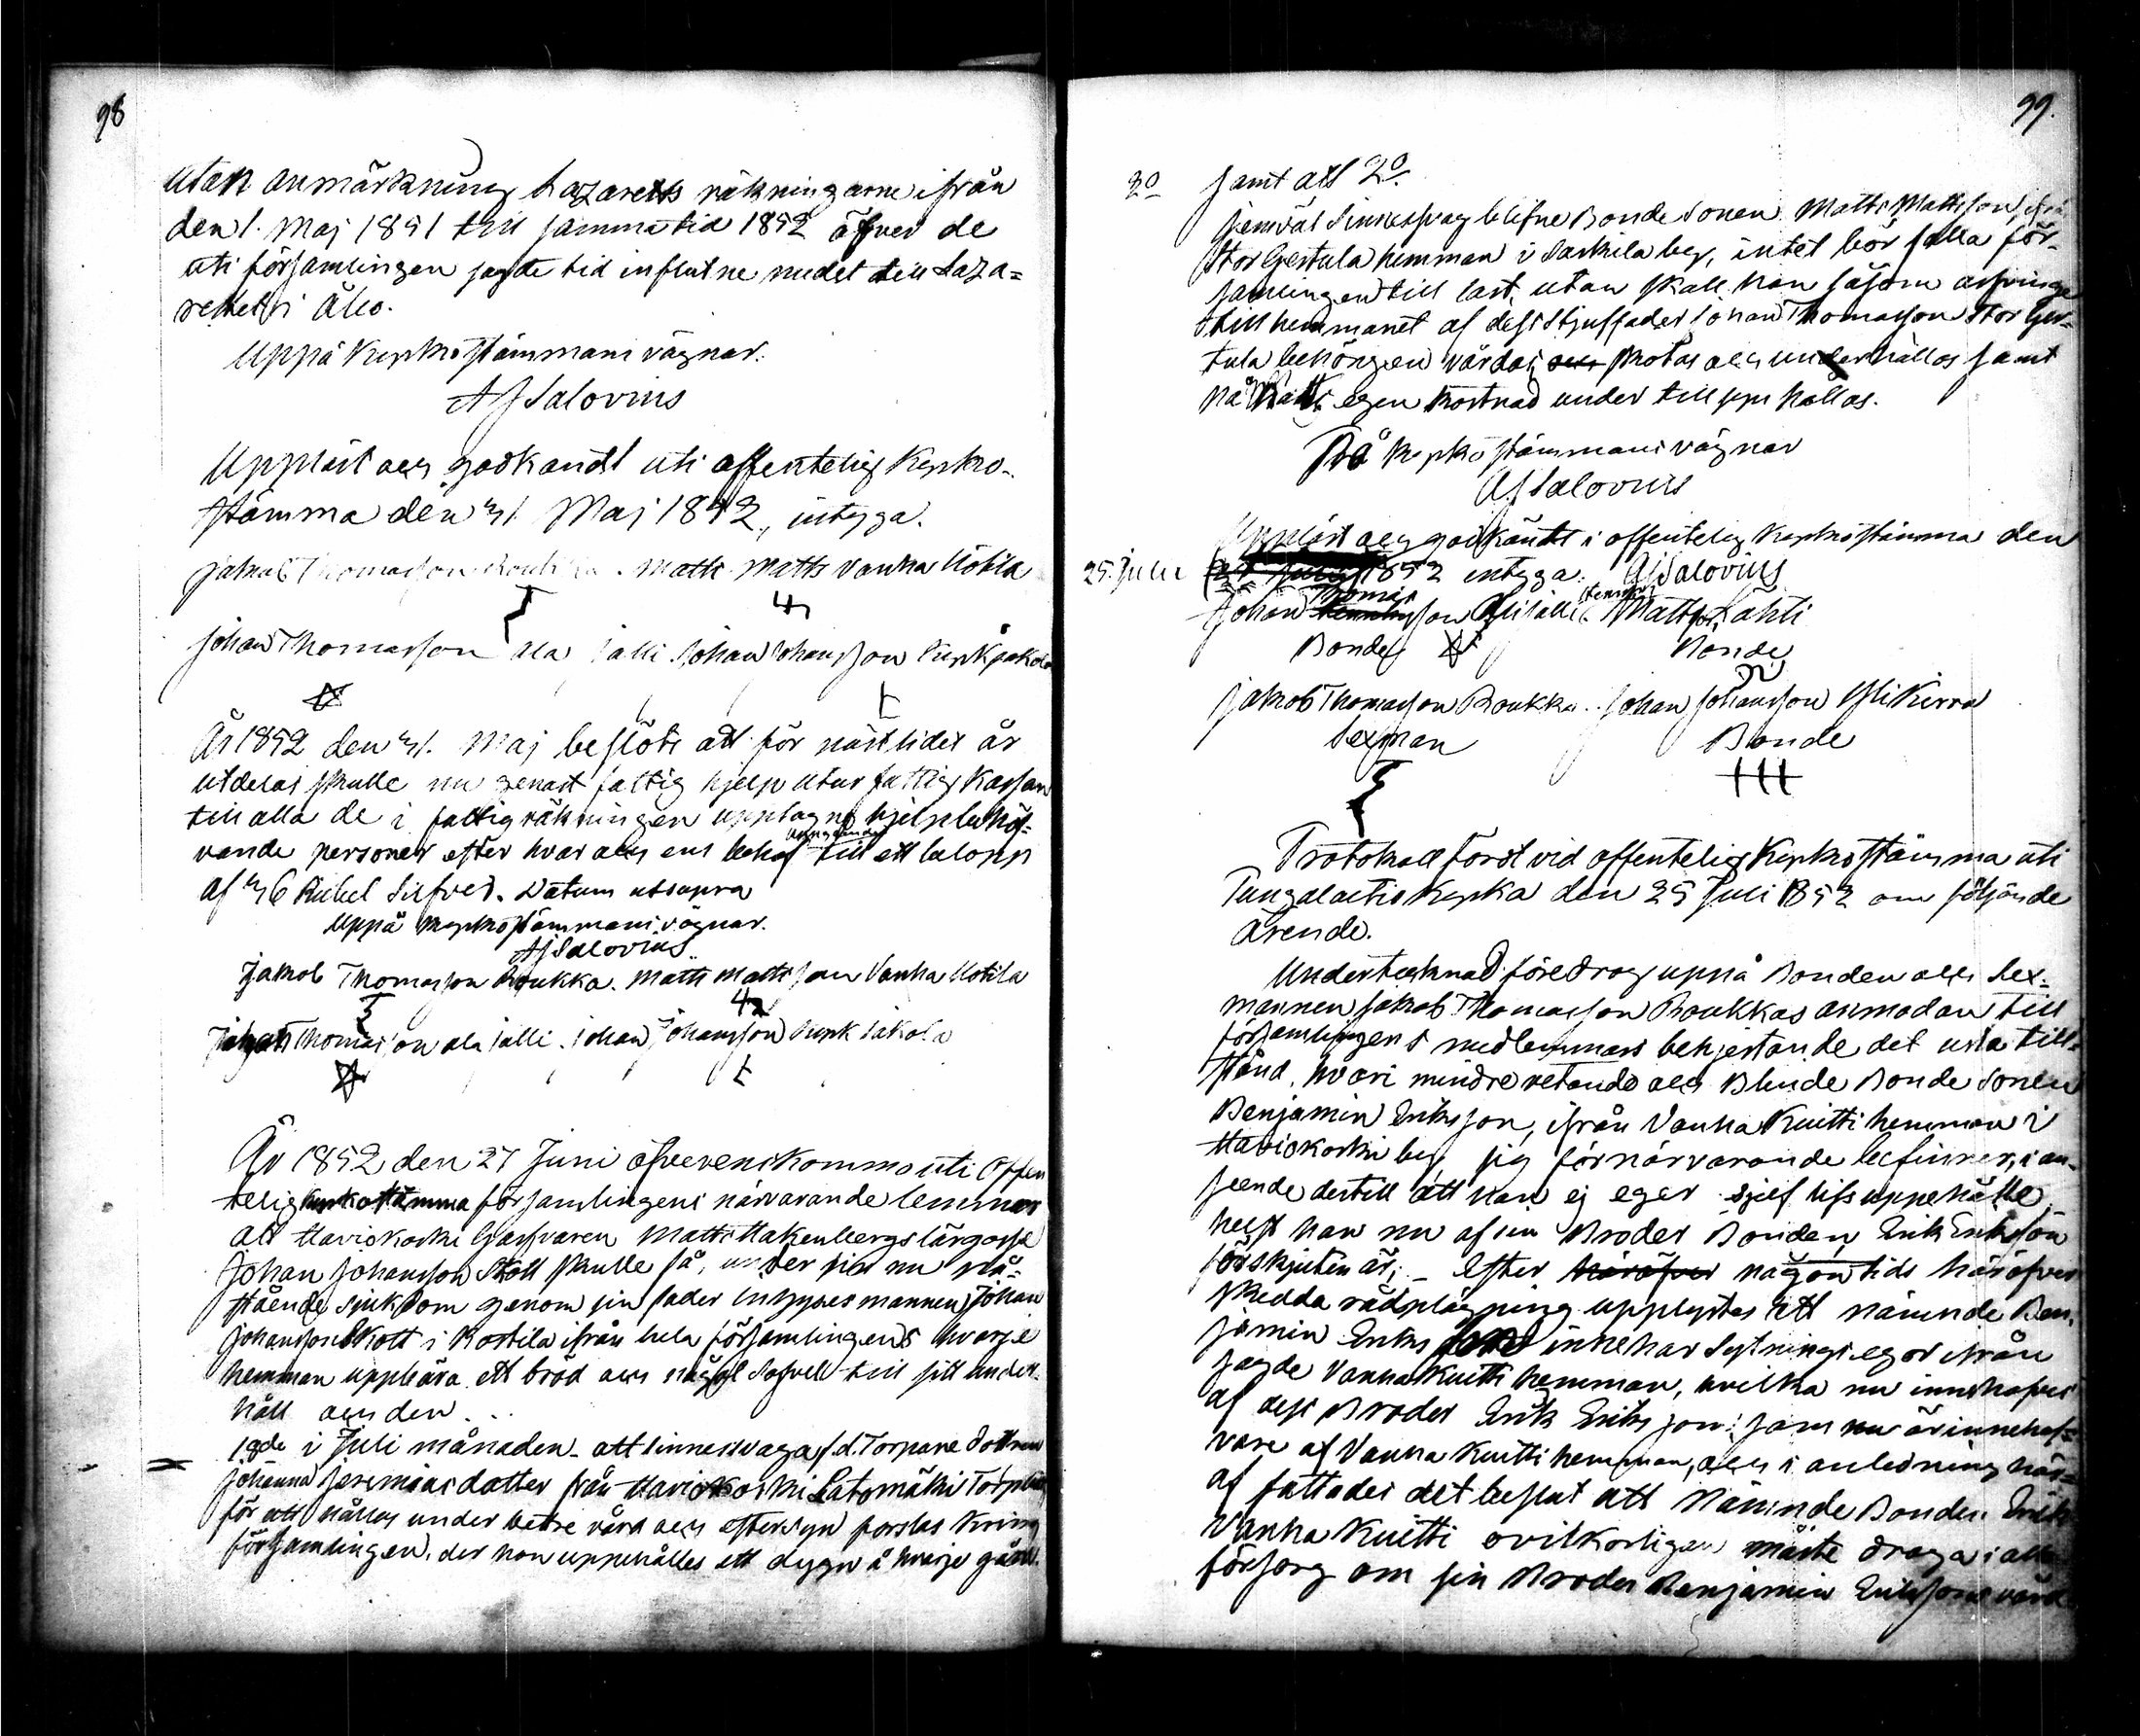 98
utan anmärkning Lazaretts räkningarne ifrån
den 1. Maj 1851 till samma tid 1852 öfver de
uti församlingen sagde tid influtne medel till Laza-
rettet i Åbo.
Uppå Kyrkostämmans vägnar.
AJSalovius
Uppläst och godkändt uti offentelig Kyrko-
stämma den 31. Maj 1852, intyga.
Jakob Thomasson Roukka. Matts Matts Vanha Uotila
Johan Thomasson Ala Jalli Johan Johansson Pirnk Jakola
År 1852 den 31. Maj beslöts att för nästlidet år
utdelas skulle nu genast fattig hjelp utur fattig Kassan
till alla de i fattigräkningen upptagne hjelpbehöf-
vande personer efter hvar och ens behof till ett belopp
af 36 Rubel Silfver. Datum utsupra
Uppå Kyrkostämmans vägnar.
AJSalovius.
Jakob Thomasson Roukka. Matts Mattsson Vanha Uotila
Johan Thomasson Ala Jalli. Johan Johansson Pirnk Jakola
År 1852 den 27 Juni öfverenskommo uti Offen
telig Kyrkostämma församlingens närvarande lemmar
att Haviokoski Garfvaren Matts Hakenbergs lärgosse
Johan Johansson Skott skulle få, under sin nu på-
stående sjukdom genom sin fader Inhysesmannen Johan
Johansson Skott i Kostila ifrån hela församlingens hvarje
hemman uppbära ett bröd och något Sofvel till sitt under-
håll och den
18de i Juli månaden att sinnessvaga f.d. Torpare dottren
Johanna Jeremias dotter från Haviokoski Latomäki Torp
för att hållas under bettre vård och eftersyn forslas kring
församlingen, der hon uppehålles ett dygn å hvarje gård.
99.
2o samt att 2o.
jemväl Sinnesswag blifne Bonde Sonen Matts Mattsson ifrån
Stor Gertula hemman i Sarkila by, intet bör falla för-
samlingen till last, utan skall han såsom arfvinge
till hemmanet af dess Stjuffader Johan Thomasson Stor Ger-
tula behörigen vårdas, skötas och underhållas samt
på Matts egen kostnad under tillsyn hållas.
På Kyrkostämmans vägnar
AJSalovius
Uppläst och godkändt i offentelig Kyrkostämma den
25. Julii 1852 intyga. AJSalovius
Johan Thomasson Ali Jalli. Matts Lahti
Bonde Bonde
Jakob Thomasson Roukka. Johan Johansson Yli Kirra
Sexman Bonde
Protokoll fördt vid offentelig Kyrkostämma uti
Pungalaitio Kyrka den 25 Juli 1852 om följande
Ärende.
Undertecknad föredrog uppå Bonden och Sex-
mannen Jakob Thomasson Roukkas anmodan till
församlingens medlemmars behjertande det usla till-
stånd, hvari mindre vetande och Blinde Bonde Sonen
Benjamin Eriksson, ifrån Vanha Kuitti hemman i
Haviokoski by, sig förnärvarande befinner, i an-
seende dertill att han ej eger sjelf lifsuppehälle,
helst han nu af sin Broder Bonden Erik Eriksson
förskjuten är; – Efter någon tids häröfver
skedda rådplägning upplystes att nämnde Ben-
jamin Eriksson innehar Sytnings egor ifrån
sagde Vanha Kuitti hemman, hvilka nu innehafves
af dess Broder Erik Eriksson; som är innehaf-
vare af Vanha Kuitti hemman, och i anledning här-
af fattades det beslut att nämnde Bonden Erik
Vanha Kuitti ovilkorligen måste draga i allo
försorg om sin Broder Benjamin Erikssons vård